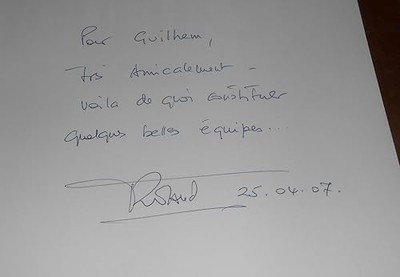 Pour Guilhem,
Très Amicalement -
voila de quoi constituer
quelques belles équipes...
25.04.07.